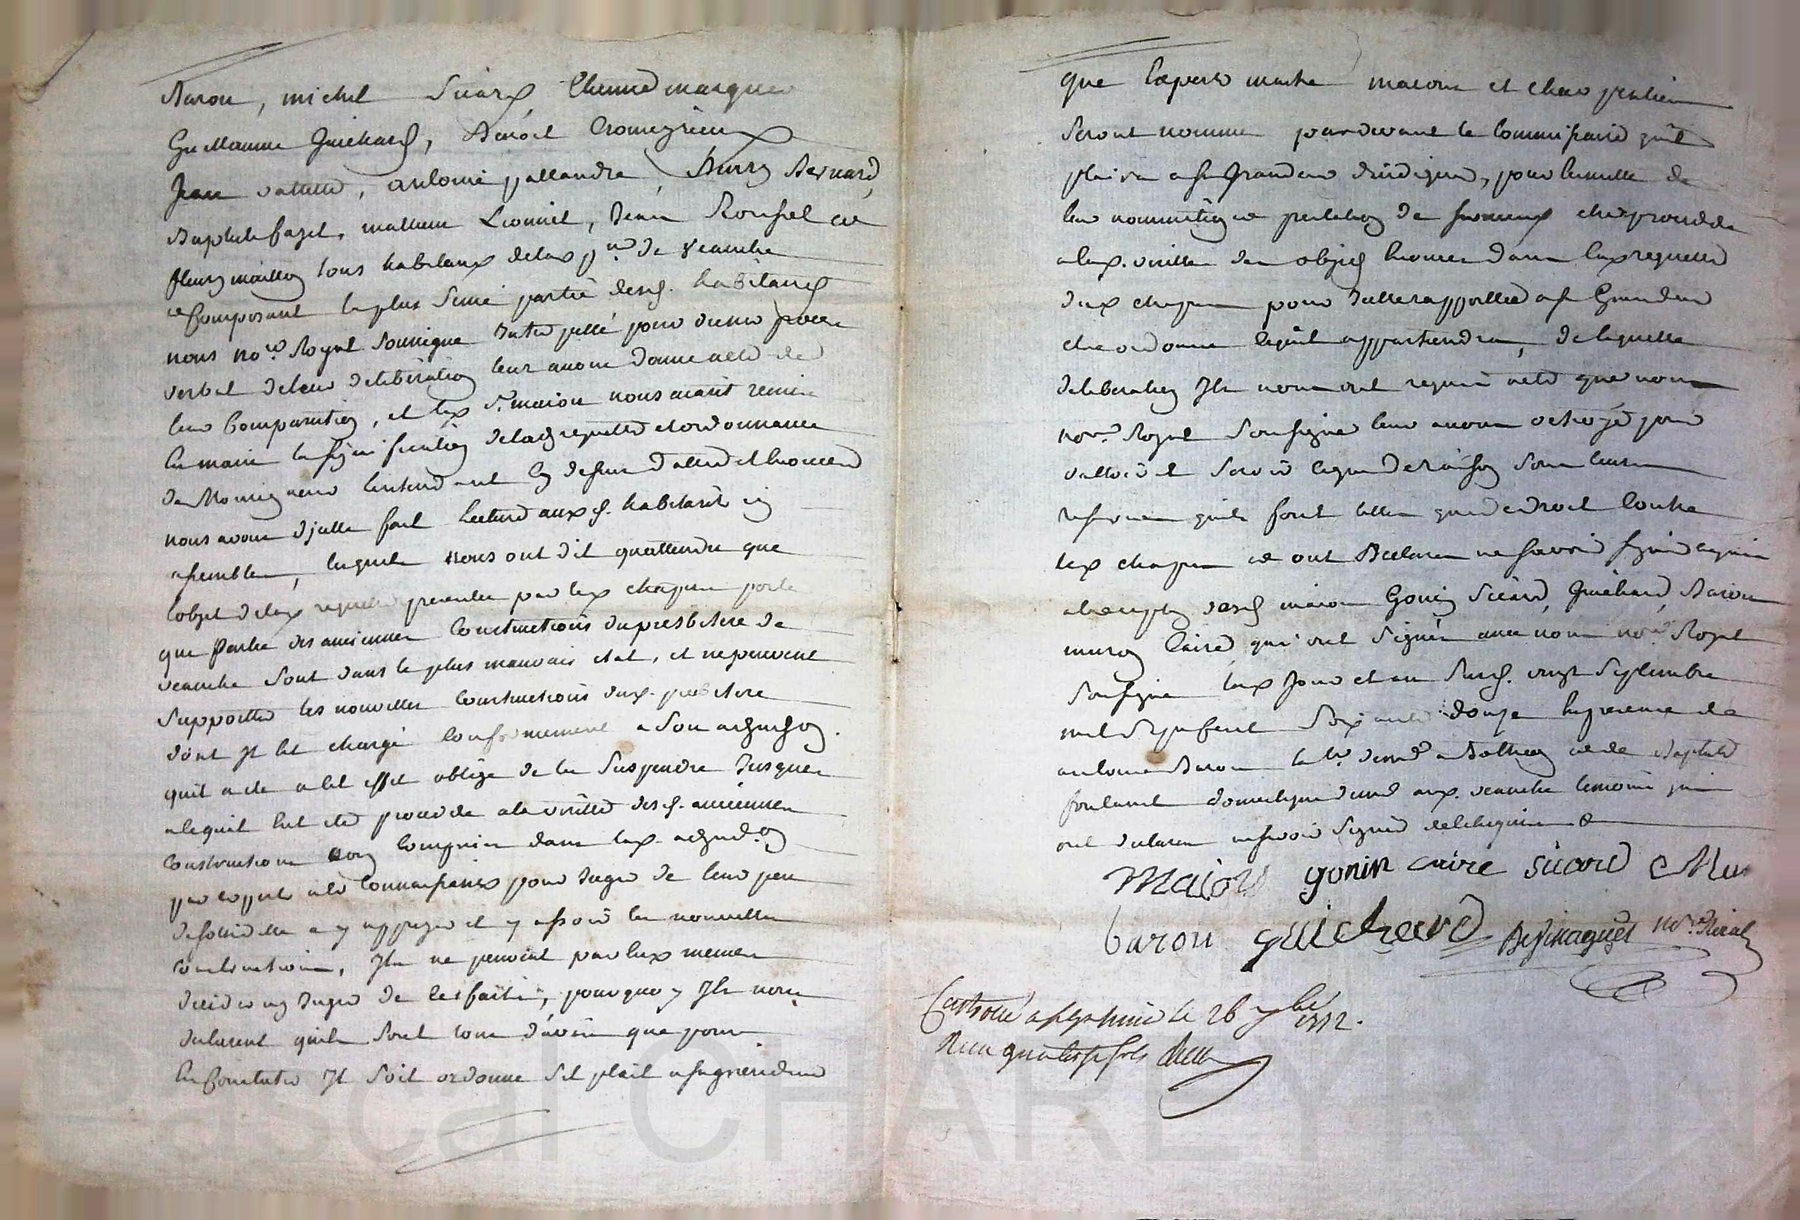 Baron, michel Sicard, Etienne marque
Guillaume Guichard, Benoit
Jean vallette, antoine pallandre, Bernard,
Baptiste fayet, mathieu Lionnet, Jean Rouffet et
fleury maillon tous habitans de lad. p.sse de veauche
et Composant la plus Seine partie desd. habitans
nous no.re Royal Soussigné interpellé pour dresser procès
verbal de leur délibération leur avons donné acte de
leur Comparution, et led. S.r maion nous aiant remis
en main la signification de lad. requette et ordonnance
de Monseigneur L'intendant
nous avons d'icelle fait Lecture auxd. habitants
assemblés, lesquels nous ont dit qu'attendu que
l'objet de lad. requette présentée par led. chapuis porte
que Partie des anciennes Constructions du presbitere de
veauche Sont dans le plus mauvais état, et ne peuvent
Supporter les nouvelles Constructions dud. presbitere
dont Il est chargé Conformément a Son adjud.on
qu'il a été a cet effet obligé de les Suspendre Jusques
a ce qu'il eut été procédé a la visitte desd. anciennes
Constructions non Comprises dans lad. adjud.on
connaissances pour Juger de leur peu
de solidité et y asseoir les nouvelles
Constructions, Ils ne peuvent par eux memes
décider ny Juger de ces faits, pourquoy Ils nous
déclarent qu'ils Sont tous d'avis que pour
les Constater Il Soit ordonné S'il plait a Sa grandeur
que Experts maitre massons et charpentiers
Seront nommés pardevant le Commissaire qu'il
plaira a Sa Grandeur d'indiquer, pour ensuitte de
leur nomination et prestation de Serment être procédé
a lad. visitte des objets énoncés dans lad. requette
dud. chapuis pour Icelle rapportée a Sa Grandeur
être ordonné ce qu'il appartiendra, de laquelle
délibération Ils nous ont requis acte que nous
no.re Royal Soussigné leur avons octroyé pour
valloir et Servir ce que de raison Sous leurs
réserves qu'ils font telles que de droit Contre
led. chapuis et ont Déclaré ne Savoir signer
a l'exception desd. maion Gonin Sicard, Guichard, Baron
Caire, qui ont Signés avec nous no.re Royal
Soussigné led. Jour et an Susd. vingt Septembre
mil Sept Cent Soixante douze En presence de
antoine Baron et de Baptiste
dud. veauche temoins qui
ont déclaré ne Savoir Signer de ce requis
Maion gonin caire sicard
baron guichard no.re Roial
Controllé a St galmier le 26 7bre 1772.
Reçu quatorze sols